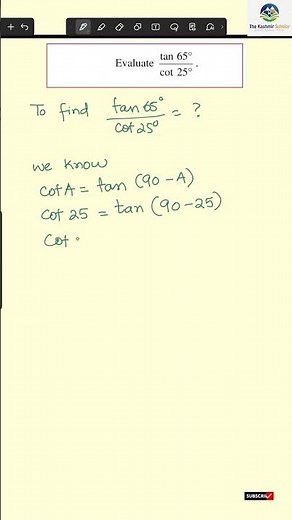 The Kashmir Scholar
Evaluate tan 65° / cot 25° .
To find tan 65° / cot 25° = ?
we know
cot A = tan (90 - A)
cot 25 = tan (90 - 25)
Cot
SUBSCRIBE